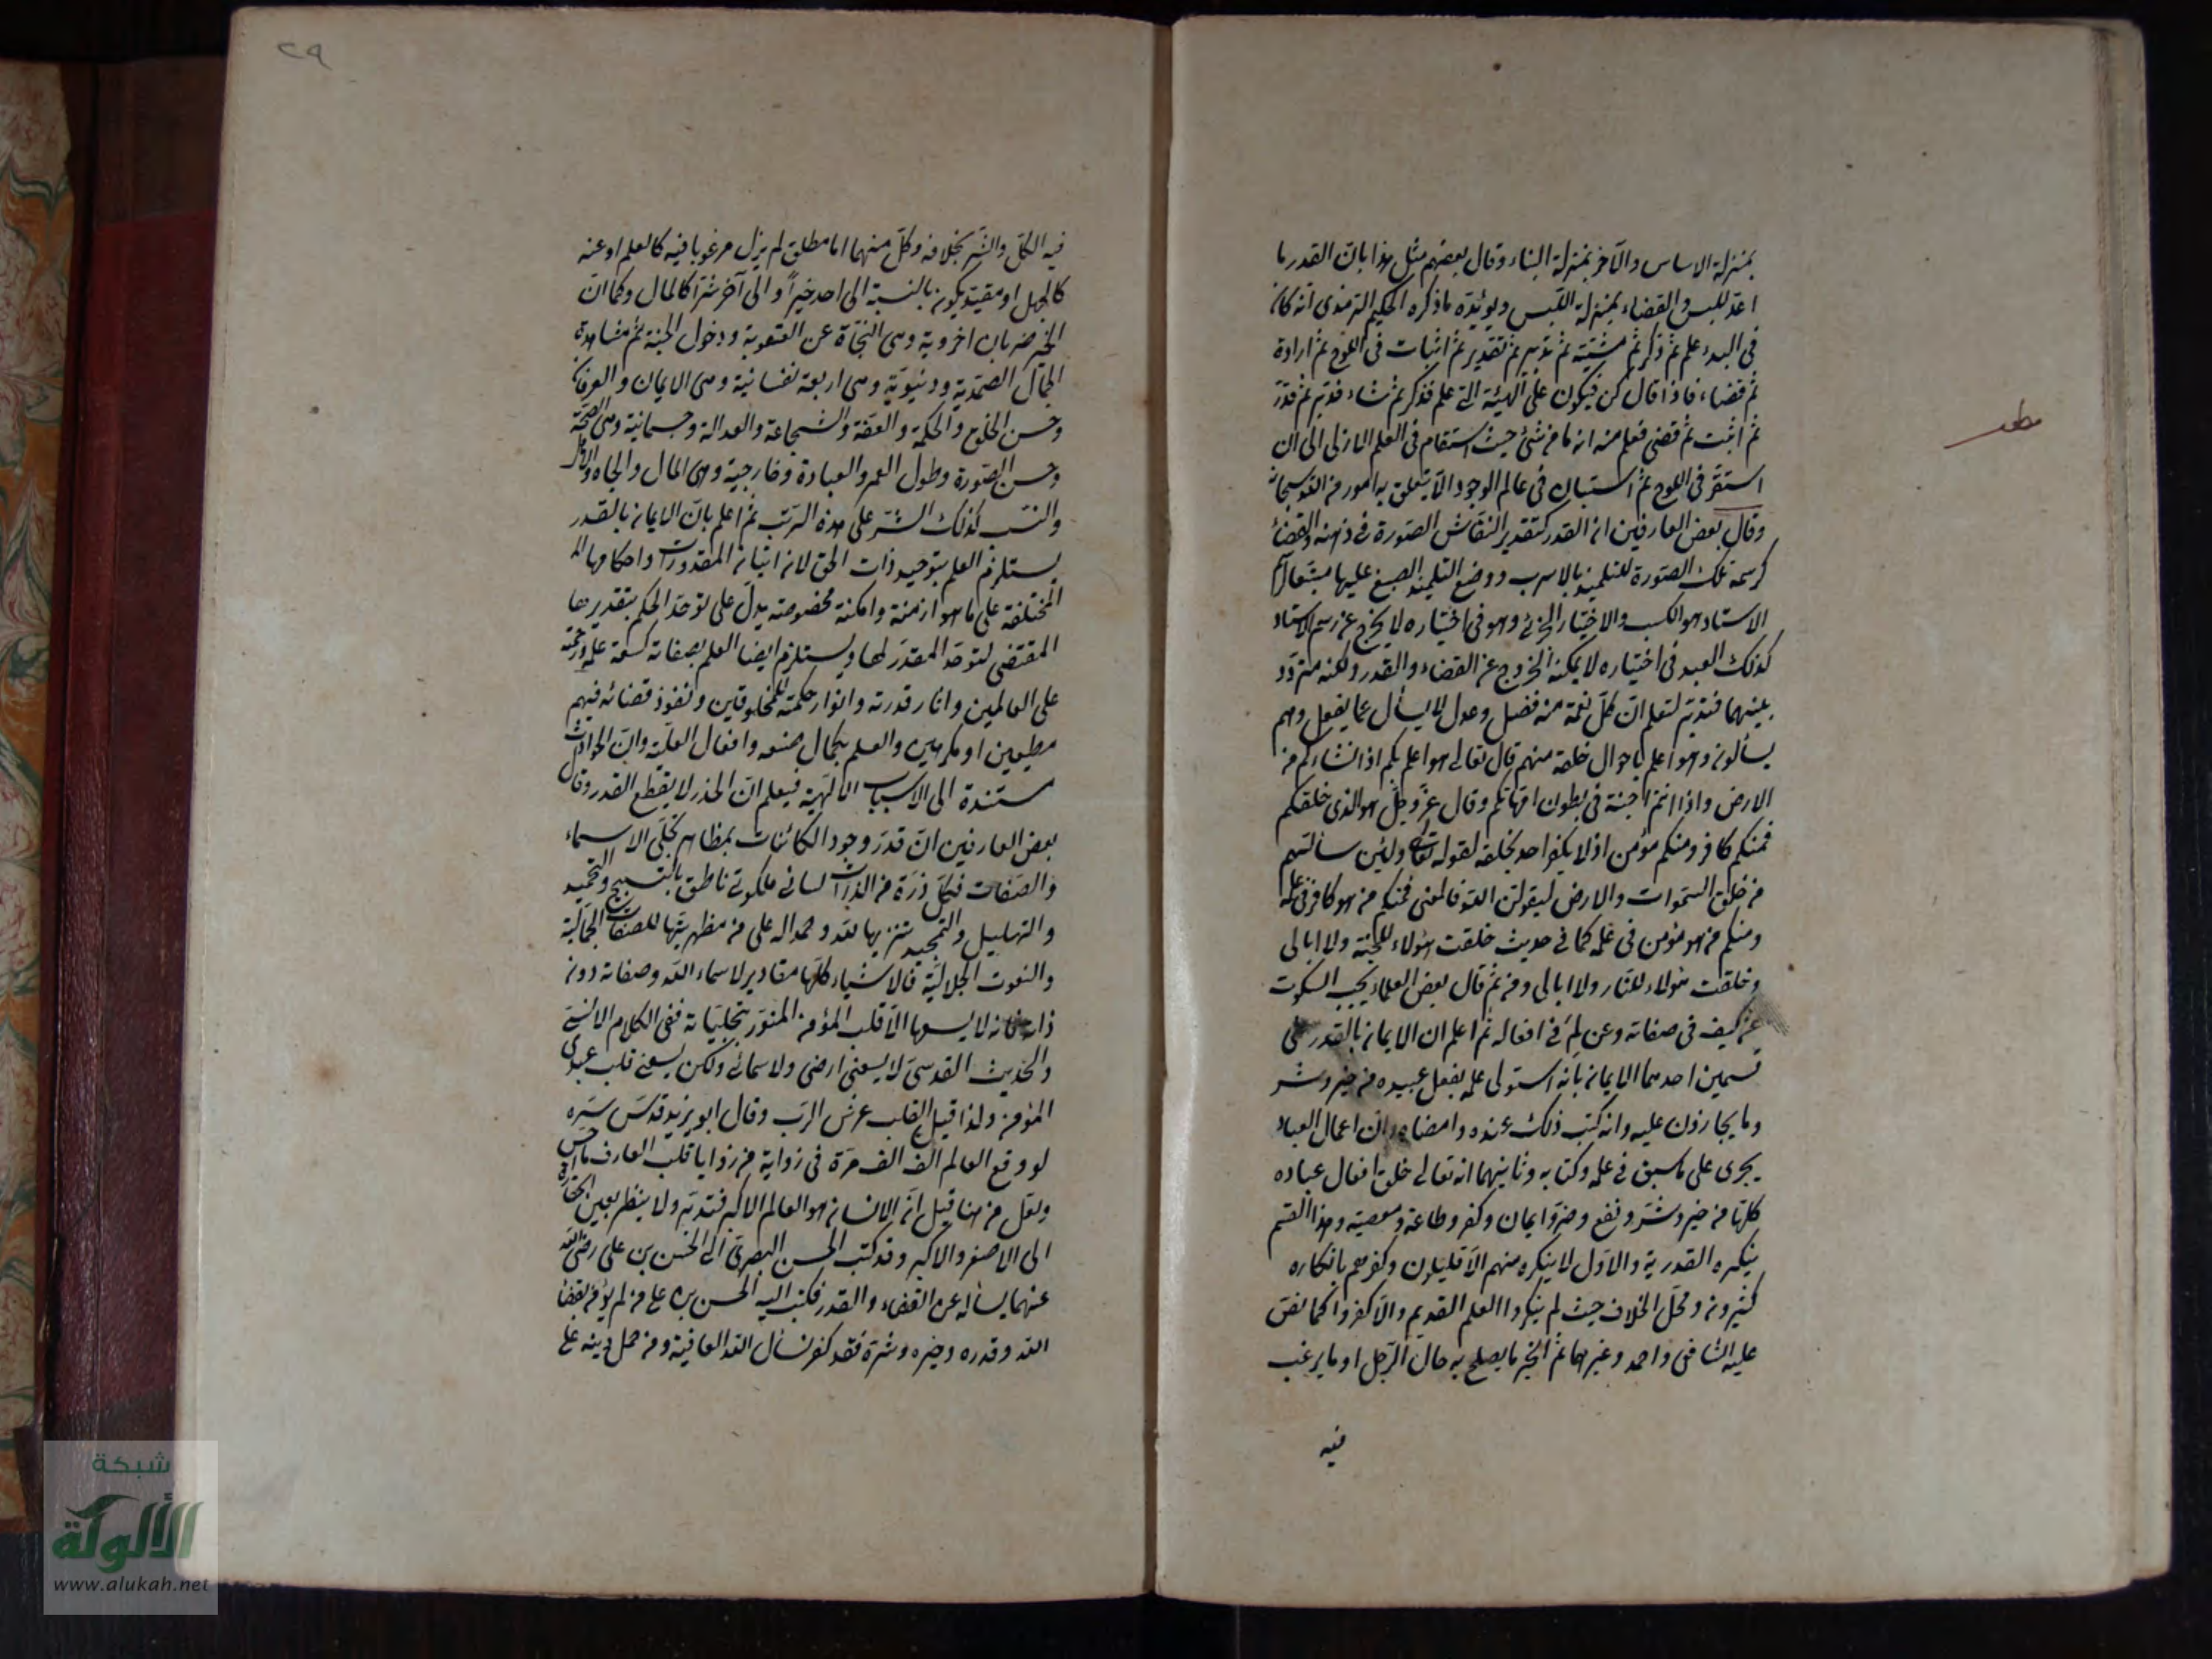 بمنزلة الاساس والآخر بمنزلة البناء وقال بعضهم مثل هذا بان القدر ما
اعد للبس والقضاء بمنزلة اللبس ويؤيده ما ذكره الحكيم الترمذي انه كان
في البدء علم ثم ذكر ثم مشيئة ثم تدبير ثم تقدير ثم اثبات في اللوح ثم ارادة
ثم قضاء فاذا قال كن فيكون على الهيئة التي علم فذكر ثم شاء فدبر ثم قدر
ثم اثبت ثم قضى فعلم منه انه ما من شئ حيث استقام في العلم الازلي الى ان
استقر في اللوح ثم استبان في عالم الوجود الا يتعلق به امور من الله سبحانه
وقال بعض العارفين ان القدر كتقدير النقاش الصورة في ذهنه والقضاء
كرسمه تلك الصورة للتلميذ بالاسرب ووضع التلميذ الصبغ عليها متبعا لرسم
الاستاد هو الكسب والاختيار الجزئي وهو في اختياره لا يخرج عن رسم الاستاد
كذلك العبد في اختياره لا يمكنه الخروج عن القضاء والقدر ولكنه متردد
بينهما فتدبر لتعلم ان كل نعمة منه فضل وعدل لا يسأل عما يفعل وهم
يسألون وهو اعلم باحوال خلقه منهم قال تعالى هو اعلم بكم اذ انشاءكم من
الارض واذ انتم اجنة في بطون امهاتكم وقال عز وجل هو الذي خلقكم
فمنكم كافر ومنكم مؤمن اذ لا يكفر احد بخلقه لقوله تعالى ولئن سألتهم
من خلق السموات والارض ليقولن الله فالمعنى فمنكم من هو كافر في علمه
ومنكم من هو مؤمن في علمه كما في حديث خلقت هؤلاء للجنة ولا ابالي
وخلقت هؤلاء للنار ولا ابالي ومن ثم قال بعض العلماء يجب السكوت
عن كيف في صفاته وعن لم في افعاله ثم اعلم ان الايمان بالقدر على
قسمين احدهما الايمان بانه استولى علمه بفعل عبيده من خير وشر
وما يجازون عليه وانه كتب ذلك عنده وامضاه وان اعمال العباد
يجرى على ما سبق في علمه وكتابه وثانيهما انه تعالى خلق افعال عباده
كلها من خير وشر ونفع وضر وايمان وكفر وطاعة ومعصية وهذا القسم
ينكره القدرية والاول لا ينكره منهم الا قليلون وكفرهم بانكاره
كثيرون ومحل الخلاف حيث لم ينكروا العلم القديم والا كفروا كما نص
عليه الشافعي واحمد وغيرهما ثم الخير ما يصلح به حال الرجل او ما يرغب
فيه
مطلب
٢٩
فيه الكل والشر بخلافه وكل منهما اما مطلق لم يزل مرغوبا فيه كالعلم او عنه
كالجهل او مقيد يكون بالنسبة الى احد خيرا والى آخر شرا كالمال وكما ان
الخير ضربان اخروية وهي النجاة عن العقوبة ودخول الجنة ثم مشاهدة
الجمال الصمدية ودنيوية وهي اربعة نفسانية وهي الايمان والعرفان
وحسن الخلق والحكمة والعفة والشجاعة والعدالة وجسمانية وهي الصحة
وحسن الصورة وطول العمر والعبادة وخارجية وهي المال والجاه والاهل
والنسب كذلك الشر على هذه الرتب ثم اعلم بان الايمان بالقدر
يستلزم العلم بتوحيد ذات الحق لان اتيانه المقدورات واحكامها
المختلفة على ما هو ازمنة وامكنة مخصوصة يدل على توحد الحكم بتقديرها
المقتضى لتوحد المقدر لها ويستلزم ايضا العلم بصفاته كسعة علمه ورحمته
على العالمين واثار قدرته وانوار حكمته للمخلوقين ونفوذ قضائه فيهم
مطيعين او مكرهين والعلم بكمال صنعه وافعال العلية وان الحوادث
مستندة الى الاسباب الالهية فيعلم ان الحذر لا يقطع القدر وقال
بعض العارفين ان قدر وجود الكائنات بمظاهر تجلى الاسماء
والصفات فبكل ذرة من الذرات لسان ملكوتي ناطق بالتسبيح والتحميد
والتهليل والتمجيد تنزيها لله وحمدا له على من مظهريتها للصفات الجمالية
والنعوت الجلالية فالاشياء كلها مقادير لاسماء الله وصفاته دون
ذاته فانه لا يسعها الا قلب المؤمن المنور بتجلياته ففي الكلام الانسي
والحديث القدسي لا يسعني ارضي ولا سمائي ولكن يسعني قلب عبدي
المؤمن ولذا قيل القلب عرش الرب وقال ابو يزيد قدس سره
لو وقع العالم الف الف مرة في زواية من زوايا قلب العارف ما احس
ولعل من هنا قيل ان الانسان هو العالم الاكبر فتدبر ولا ينظر بعين الحقارة
الى الاصغر والاكبر وقد كتب الحسن البصري الى الحسن بن علي رضي الله
عنهما يسأله عن القضاء والقدر فكتب اليه الحسن بن علي من لم يؤمن بقضاء
الله وقدره وخيره وشره فقد كفر نسأل الله العافية ومن حمل دينه على
شبكة
الألوكة
www.alukah.net